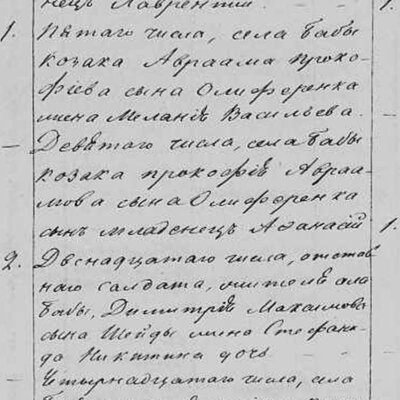 нецъ Лаврентій. 1.
1. Пятаго числа, села Бабы
козака Авраама Проко-
фіева сына Олиференка
жена Меланія Васильева.
— Девятаго числа, села Бабы
козака Прокофія Авраа-
мова сына Олиференка
сынъ младенецъ Аѳанасій 1.
2. Двенадцатаго числа, отстав
наго солдата, жителя села
Бабы, Димитрія Максимова
сына Шейды жена Стефани-
да Никитина дочь
— Четырнадцатаго числа, села